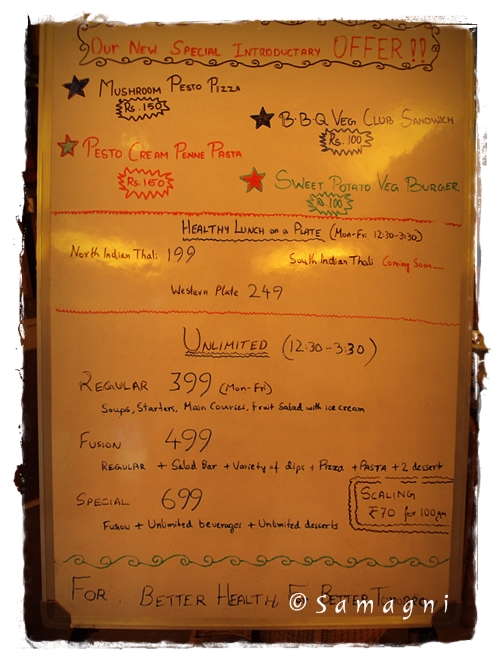 Our New Special Introductary OFFER!!
Mushroom Pesto Pizza
Rs. 150
B.B.Q Veg Club Sandwich
Rs. 100
Pesto Cream Penne Pasta
Rs. 150
Sweet Potato Veg Burger
Rs. 100
Healthy Lunch on a Plate (Mon-Fri 12:30-3:30)
North Indian Thali 199
South Indian Thali Coming Soon.....
Western Plate 249
Unlimited (12:30-3:30)
Regular 399 (Mon-Fri)
Soups, Starters, Main Courses, Fruit Salad with ice cream
Fusion 499
Regular + Salad Bar + Variety of dips + Pizza + Pasta + 2 dessert
Special 699
Fusion + Unlimited beverages + Unlimited desserts
Scaling
₹70 for 100gm
For Better Health, Better Tomorrow
© Samagni